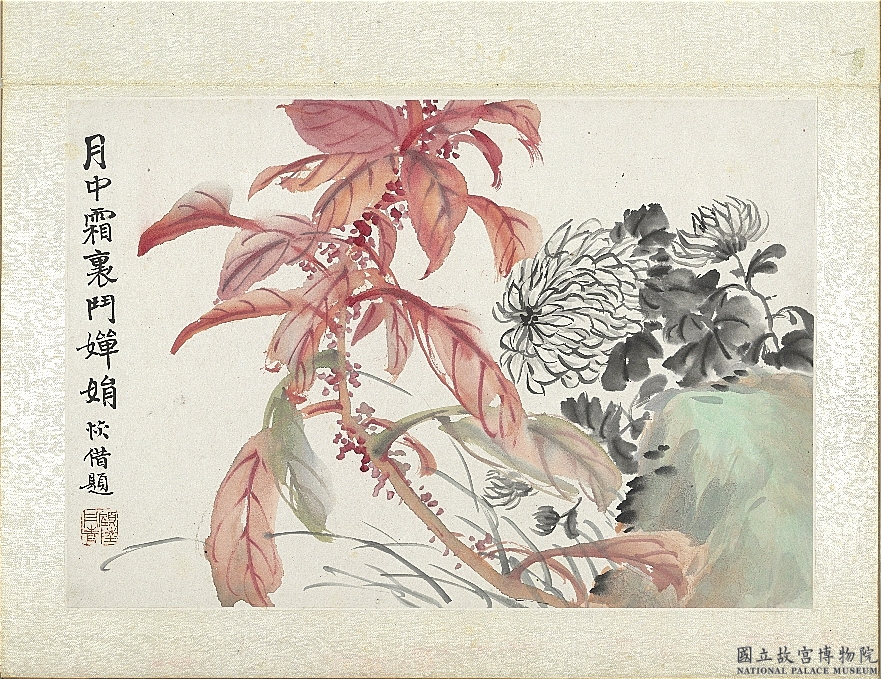 月中霜裏鬥嬋娟
恢借題
國立故宮博物院
NATIONAL PALACE MUSEUM